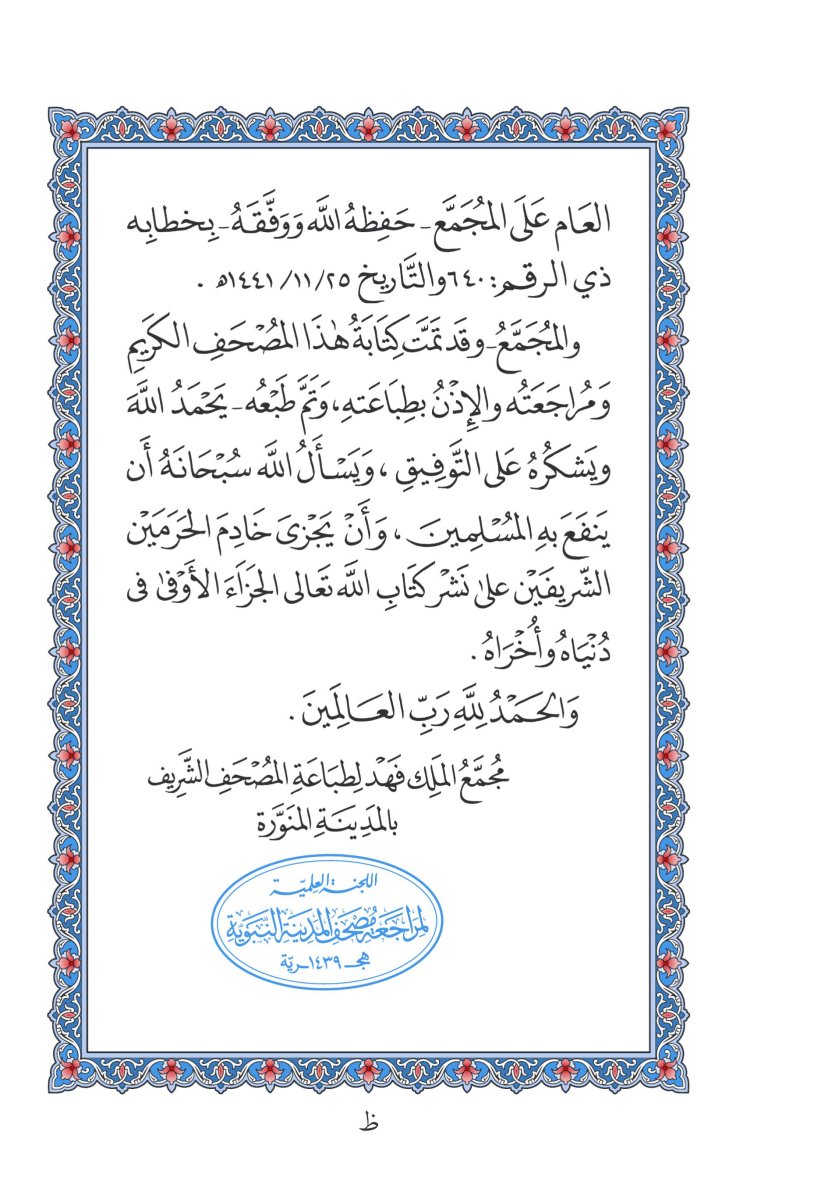 العَام عَلَى المُجَمَّع - حَفِظهُ اللَّه وَوَفَّقَهُ - بِخطابِه
ذي الرقم: ٦٤٠ والتَّاريخ ١٤٤١/١١/٢٥هـ .
والمُجَمَّعُ - وقد تمَّت كِتَابَةُ هٰذَا المُصْحَفِ الكَرِيمِ
وَمُراجَعَتُه والإِذْنُ بطِبَاعَتهِ، وَتَمَّ طَبْعُه - يَحْمَدُ اللَّهَ
ويَشكرُهُ عَلى التَّوفِيقِ ، وَيَسْأَلُ اللَّه سُبْحَانَهُ أَن
يَنفَعَ بهِ المُسْلِمينَ ، وَأَنْ يَجْزىَ خَادِمَ الحَرَمَيْن
الشّريفَيْن علىٰ نَشْر كتَابِ اللَّه تَعَالى الجَزَاءَ الأَوْفىٰ فى
دُنْيَاهُ وأُخْرَاهُ .
وَالحَمْدُ لِلَّهِ رَبِّ العَالَمِينَ .
مُجمَّعُ المَلِك فَهْد لِطبَاعَةِ المُصْحَفِ الشَّرِيف
بالمَدِينَةِ المنَوَّرة
اللجنة العِلميّة
لمراجَعَة مُصْحَف المدينَة النَّبَويَّة
هجـ ١٤٣٩ ـريّة
ظ